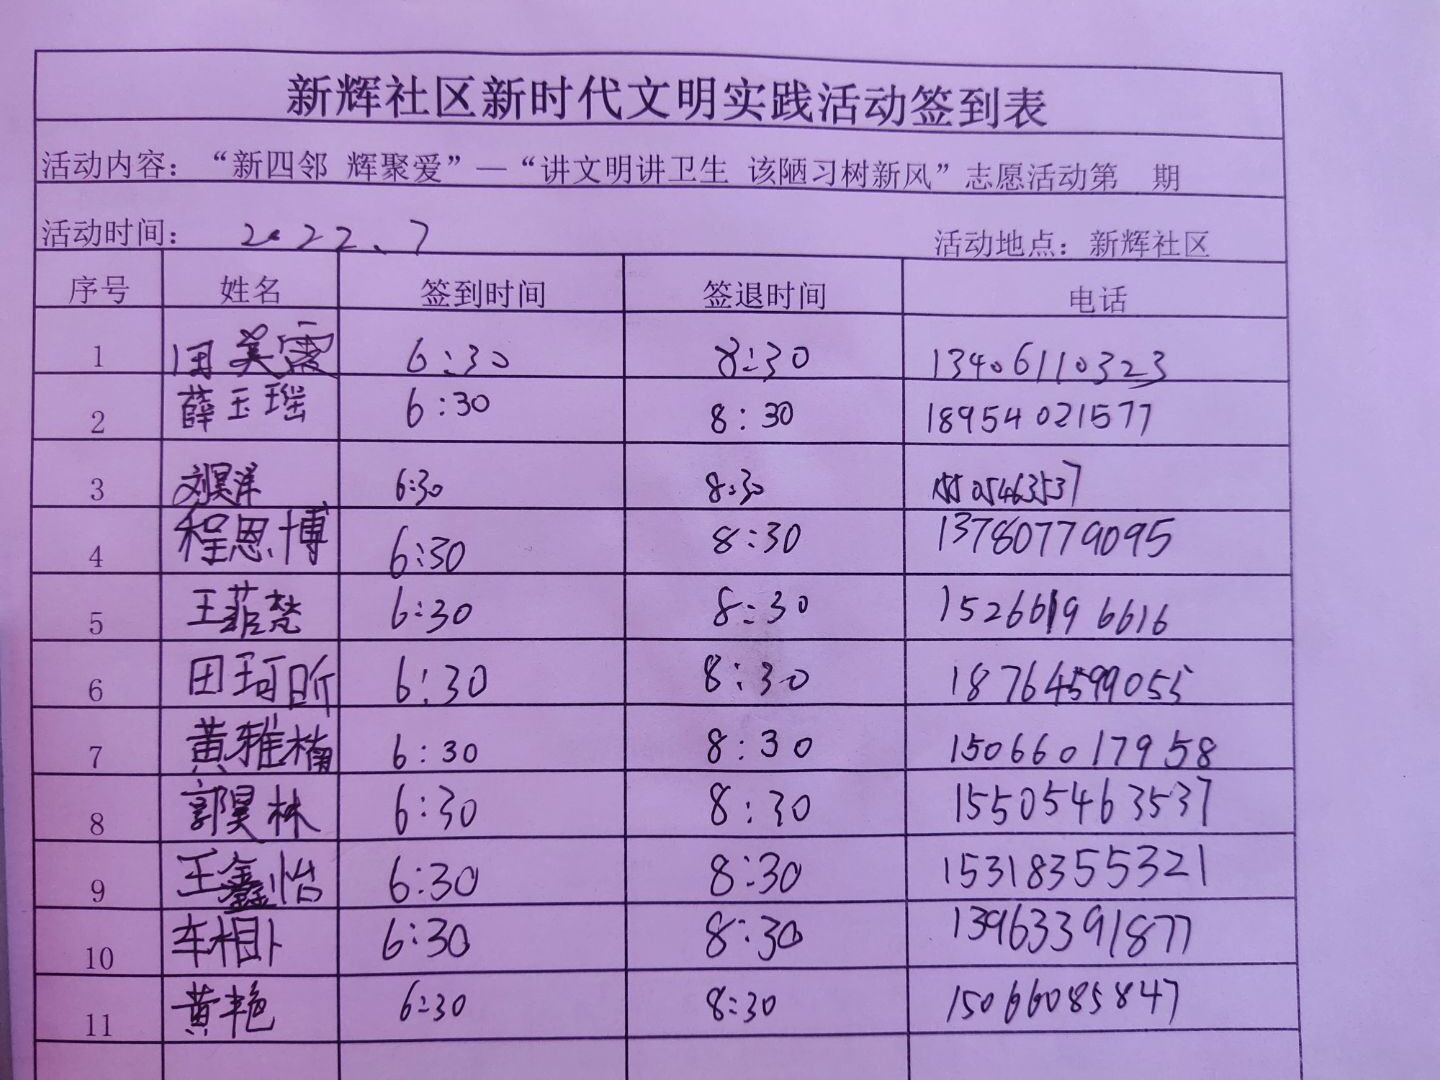 新辉社区新时代文明实践活动签到表
活动内容：“新四邻 辉聚爱”—“讲文明讲卫生 该陋习树新风”志愿活动第 期
活动时间： 2022、7 活动地点：新辉社区
序号 姓名 签到时间 签退时间 电话
1 田美霞 6:30 8:30 13406110323
2 薛玉瑶 6:30 8:30 18954021577
3 刘昊洋 6:30 8:30 15505463537
4 程恩博 6:30 8:30 13780779095
5 王菲梵 6:30 8:30 15266196616
6 田珂昕 6:30 8:30 18764599055
7 黄雅楠 6:30 8:30 15066017958
8 郭昊林 6:30 8:30 15505463537
9 王鑫怡 6:30 8:30 15318355321
10 车相卜 6:30 8:30 13963391877
11 黄艳 6:30 8:30 15066085847